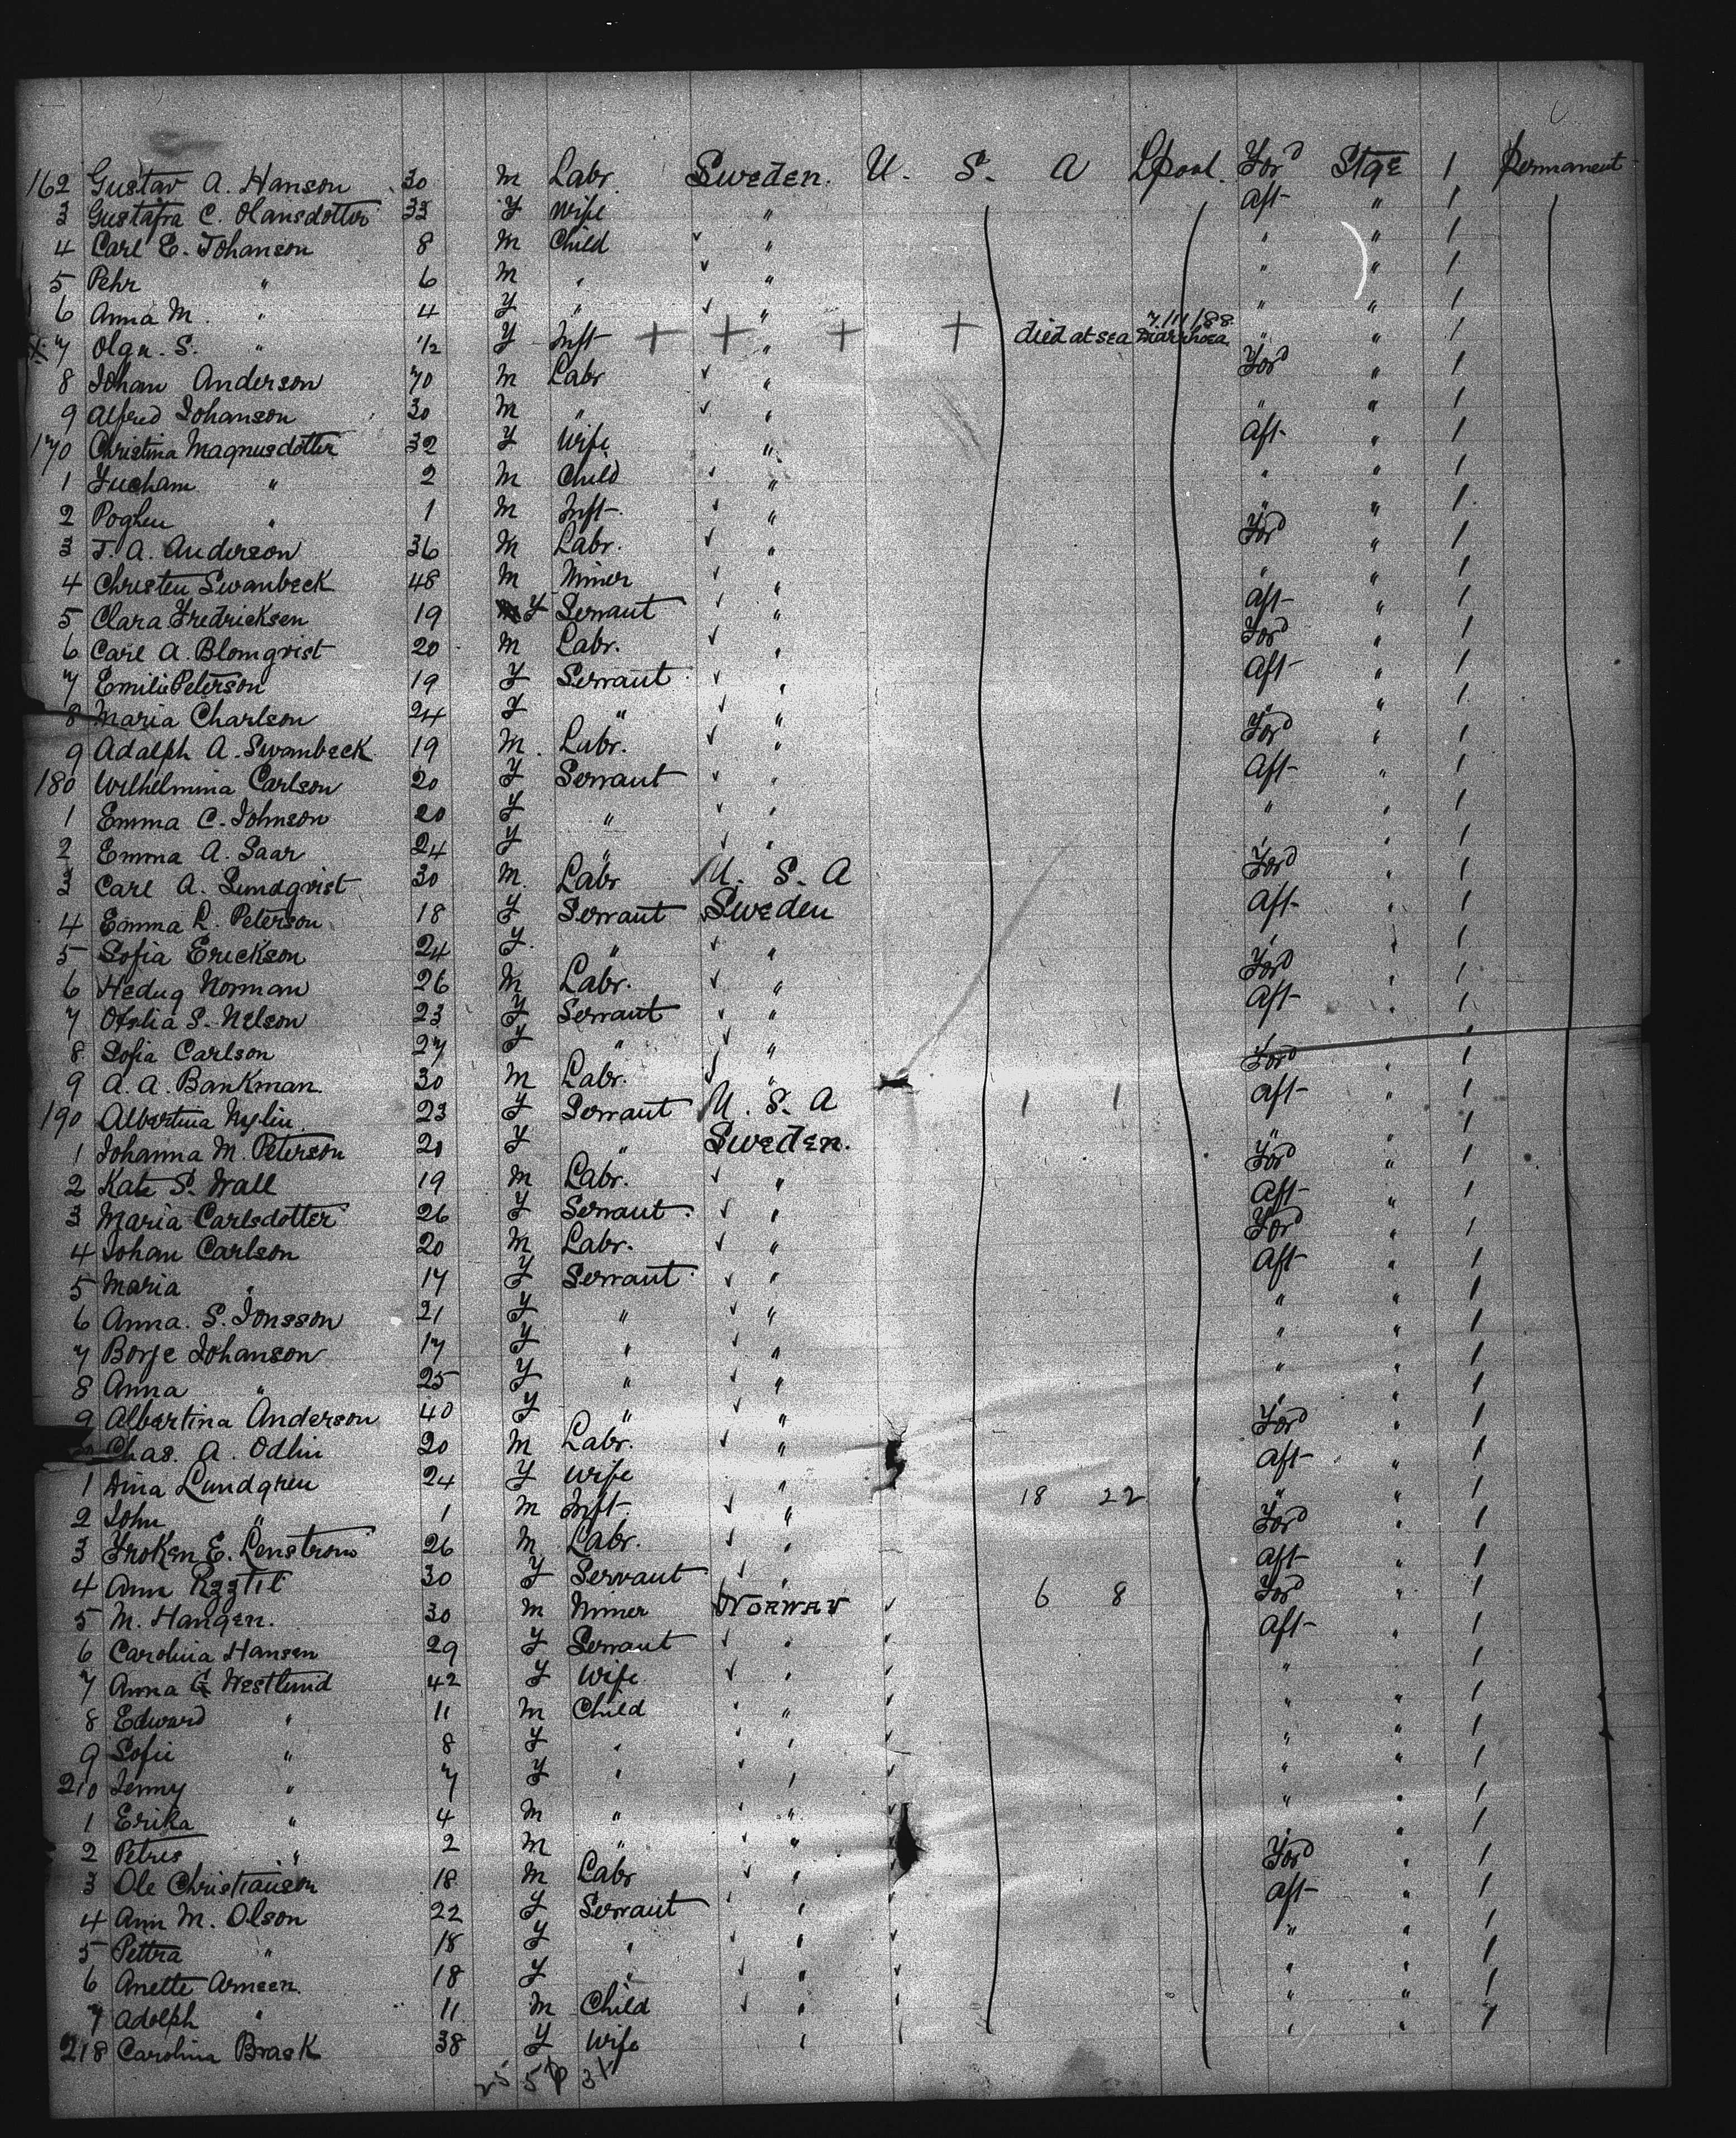 162 Gustav A. Hanson 30 M Labr. Sweden. U. S. A Lpool. Ford Stge 1 Permanent
3 Gustafra C. Hansdotter 33 F Wife " Aft " 1
4 Carl E. Johanson 8 M Child " " " 1
5 Pehr " 6 M " " " " 1
6 Anna M. " 4 F " " " " 1
7 Olga. S. " 1/2 F Inft + + + + " died at sea Diarrhoea " " 1
8 Johan Anderson 70 M Labr " Ford " 1
9 Alfred Johanson 30 M " " " " 1
170 Christina Magnusdotter 32 F Wife " Aft " 1
1 " 2 M Child " " " 1
2 " 1 M Inft " " " 1
3 J. A. Anderson 36 M Labr. " Ford " 1
4 Christen Swanbeck 48 M Miner " " " 1
5 Clara Fredricksen 19 F Servant " Aft " 1
6 Carl A. Blomqvist 20 M Labr. " Ford " 1
7 Emilie Peterson 19 F Servant " Aft " 1
8 Maria Charlson 24 F " " " " 1
9 Adalph A. Swanbeck 19 M Labr. " Ford " 1
180 Wilhelmina Carlson 20 F Servant " Aft " 1
1 Emma C. Johnson 20 F " " " " 1
2 Emma A. Saar 24 F " " " " 1
3 Carl A. Lundqvist 30 M Labr U. S. A Ford " 1
4 Emma L. Peterson 18 F Servant Sweden Aft " 1
5 Sofia Erickson 24 F " " " " 1
6 Hedug Norman 26 M Labr. " Ford " 1
7 S. Nelson 23 F Servant " Aft " 1
8 Sofia Carlson 27 F " " " 1
9 A. A. Bankman. 30 M Labr. " Ford " 1
190 Albertina Nylin 23 F Servant U. S. A 1 1 Aft " 1
1 Johanna M. Peterson 20 F " Sweden. " " 1
2 Kate S. Wall 19 M Labr. " Ford " 1
3 Maria Carlsdotter 26 F Servant " Aft " 1
4 Johan Carlson 20 M Labr. " Ford " 1
5 Maria " 17 F Servant " Aft " 1
6 Anna. S. Jonsson 21 F " " " " 1
7 Borje Johanson 17 F " " " " 1
8 Anna " 25 F " " " " 1
9 Albertina Anderson 40 F " " " " 1
Chas. A. Odlin 20 M Labr. " Ford " 1
1 Lundgren 24 F Wife " Aft " 1
2 John " 1 M Inft " 18 22 " " 1
3 Froken E. Lenstrom 26 M Labr. " Ford " 1
4 Ann 30 F Servant " Aft " 1
5 M. Hangen. 30 M Miner Norway 6 8 Ford " 1
6 Carolina Hansen 29 F Servant " Aft " 1
7 Anna G Westlund 42 F Wife " " 1
8 Edward " 11 M Child " " " 1
9 Sofie " 8 F " " " " 1
210 Jenny " 7 F " " " " 1
1 Erika " 4 M " " " " 1
2 Petres " 2 M " " " " 1
3 Ole Christianson 18 M Labr " Ford " 1
4 Ann M. Olson 22 F Servant " Aft " 1
5 Pettra " 18 F " " " " 1
6 Anette Armeen 18 F " " " " 1
7 Adolph " 11 M Child " " " 1
218 Carolina Brask 38 F Wife " " " 1